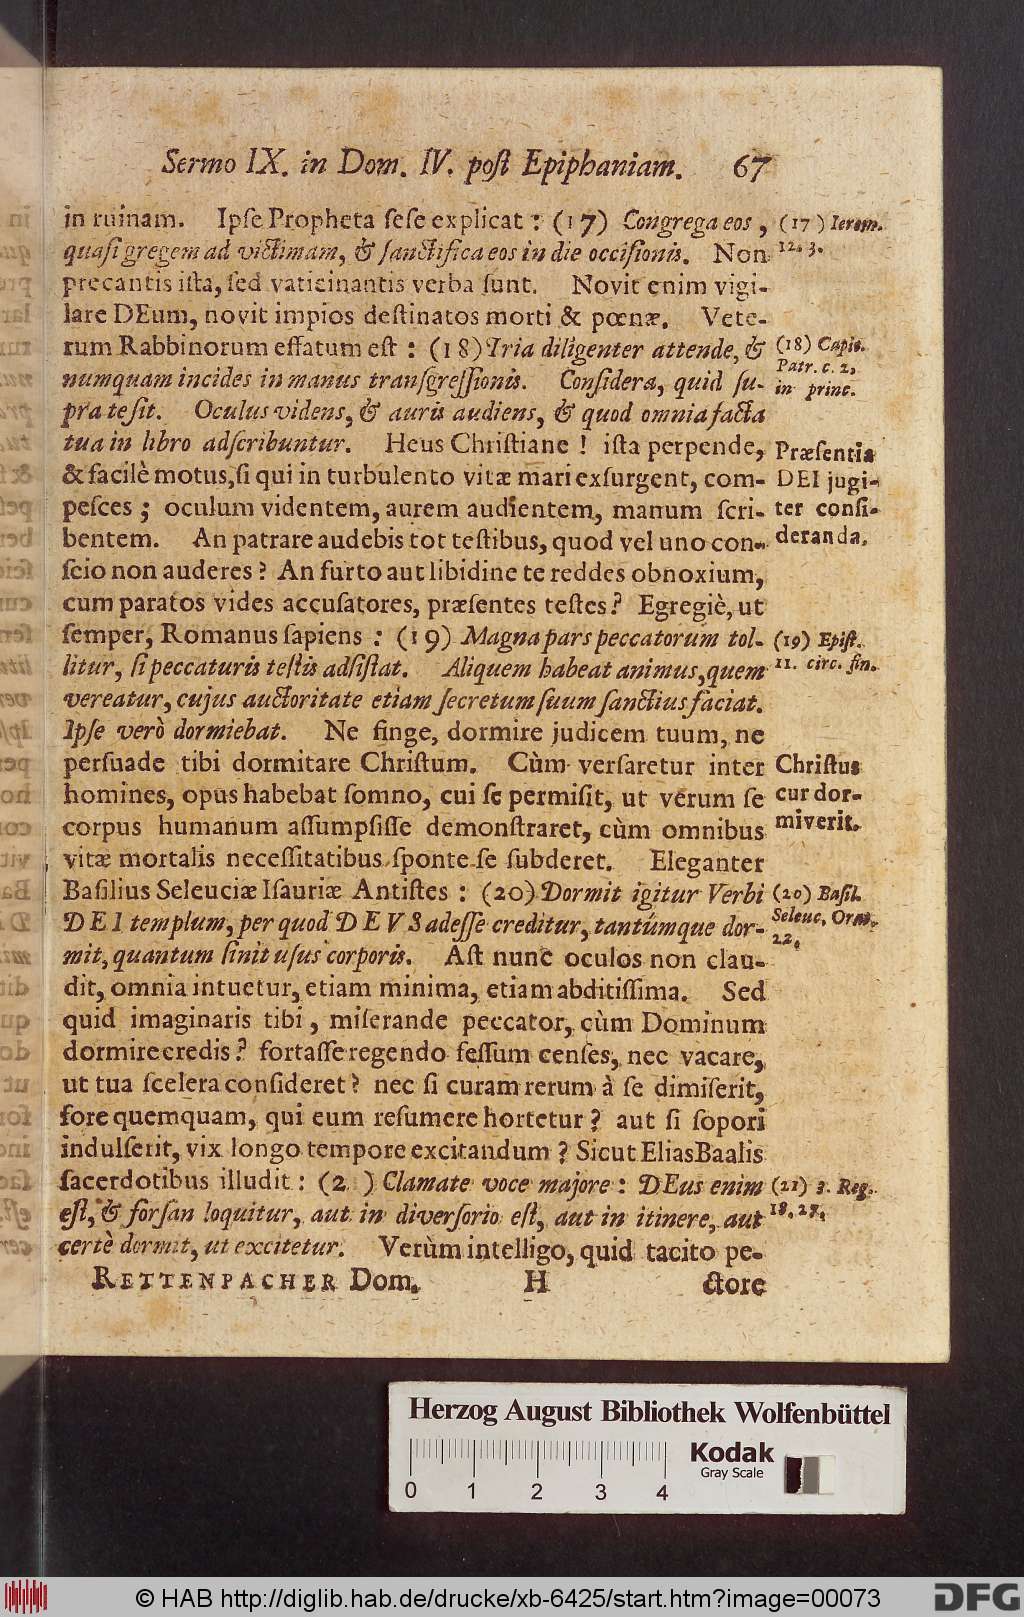 Sermo IX. in Dom. IV. poſt Epiphaniam. 67
in ruinam. Ipſe Propheta ſeſe explicat : (17) Congrega eos,
quaſi gregem ad victimam, & ſanctifica eos in die occiſionis. Non
precantis iſta, ſed vaticinantis verba ſunt. Novit enim vigi-
lare DEum, novit impios deſtinatos morti & pœnæ. Vete-
rum Rabbinorum effatum eſt : (18) Tria diligenter attende, &
numquam incides in manus tranſgreſſionis. Conſidera, quid ſu-
pra te ſit. Oculus videns, & auris audiens, & quod omnia facta
tua in libro adſcribuntur. Heus Chriſtiane ! iſta perpende,
& facilè motus, ſi qui in turbulento vitæ mari exſurgent, com-
peſces ; oculum videntem, aurem audientem, manum ſcri-
bentem. An patrare audebis tot teſtibus, quod vel uno con-
ſcio non auderes? An furto aut libidine te reddes obnoxium,
cum paratos vides accuſatores, præſentes teſtes? Egregiè, ut
ſemper, Romanus ſapiens : (19) Magna pars peccatorum tol-
litur, ſi peccaturis teſtis adſiſtat. Aliquem habeat animus, quem
vereatur, cujus auctoritate etiam ſecretum ſuum ſanctius faciat.
Ipſe verò dormiebat. Ne finge, dormire judicem tuum, ne
perſuade tibi dormitare Chriſtum. Cùm verſaretur inter
homines, opus habebat ſomno, cui ſe permiſit, ut verum ſe
corpus humanum aſſumpſiſſe demonſtraret, cùm omnibus
vitæ mortalis neceſſitatibus ſponte ſe ſubderet. Eleganter
Baſilius Seleuciæ Iſauriæ Antiſtes : (20) Dormit igitur Verbi
DEI templum, per quod DEVS adeſſe creditur, tantúmque dor-
mit, quantum ſinit uſus corporis. Aſt nunc oculos non clau-
dit, omnia intuetur, etiam minima, etiam abditiſſima. Sed
quid imaginaris tibi, miſerande peccator, cùm Dominum
dormire credis? fortaſſe regendo feſſum cenſes, nec vacare,
ut tua ſcelera conſideret? nec ſi curam rerum à ſe dimiſerit,
fore quemquam, qui eum reſumere hortetur? aut ſi ſopori
indulſerit, vix longo tempore excitandum? Sicut Elias Baalis
ſacerdotibus illudit : (2 ) Clamate voce majore : DEus enim
eſt, & forſan loquitur, aut in diverſorio eſt, aut in itinere, aut
certè dormit, ut excitetur. Verùm intelligo, quid tacito pe-
RETTENPACHER Dom. H ctore
(17) Ierem.
12. 3.
(18) Capit.
Patr. c. 2,
in princ.
Præſentia
DEI jugi-
ter conſi-
deranda.
(19) Epiſt.
11. circ. fin.
Chriſtus
cur dor-
miverit.
(20) Baſil.
Seleuc, Orat.
22.
(21) 3. Reg.
18. 27.
Herzog August Bibliothek Wolfenbüttel
Kodak
Gray Scale
0 1 2 3 4
© HAB http://diglib.hab.de/drucke/xb-6425/start.htm?image=00073
DFG